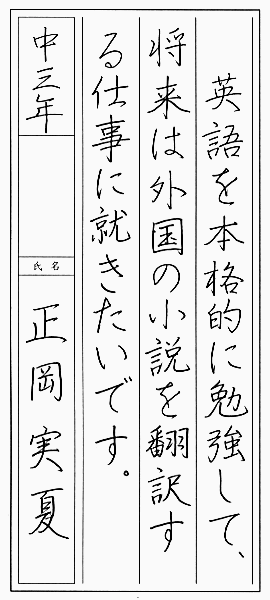 英語を本格的に勉強して、
将来は外国の小説を翻訳す
る仕事に就きたいです。
中三年
氏名
正岡実夏